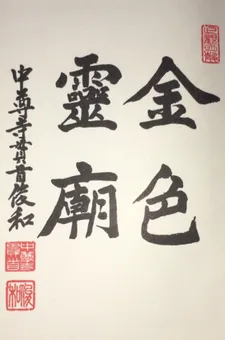 金色
靈廟
中尊寺貫首俊和